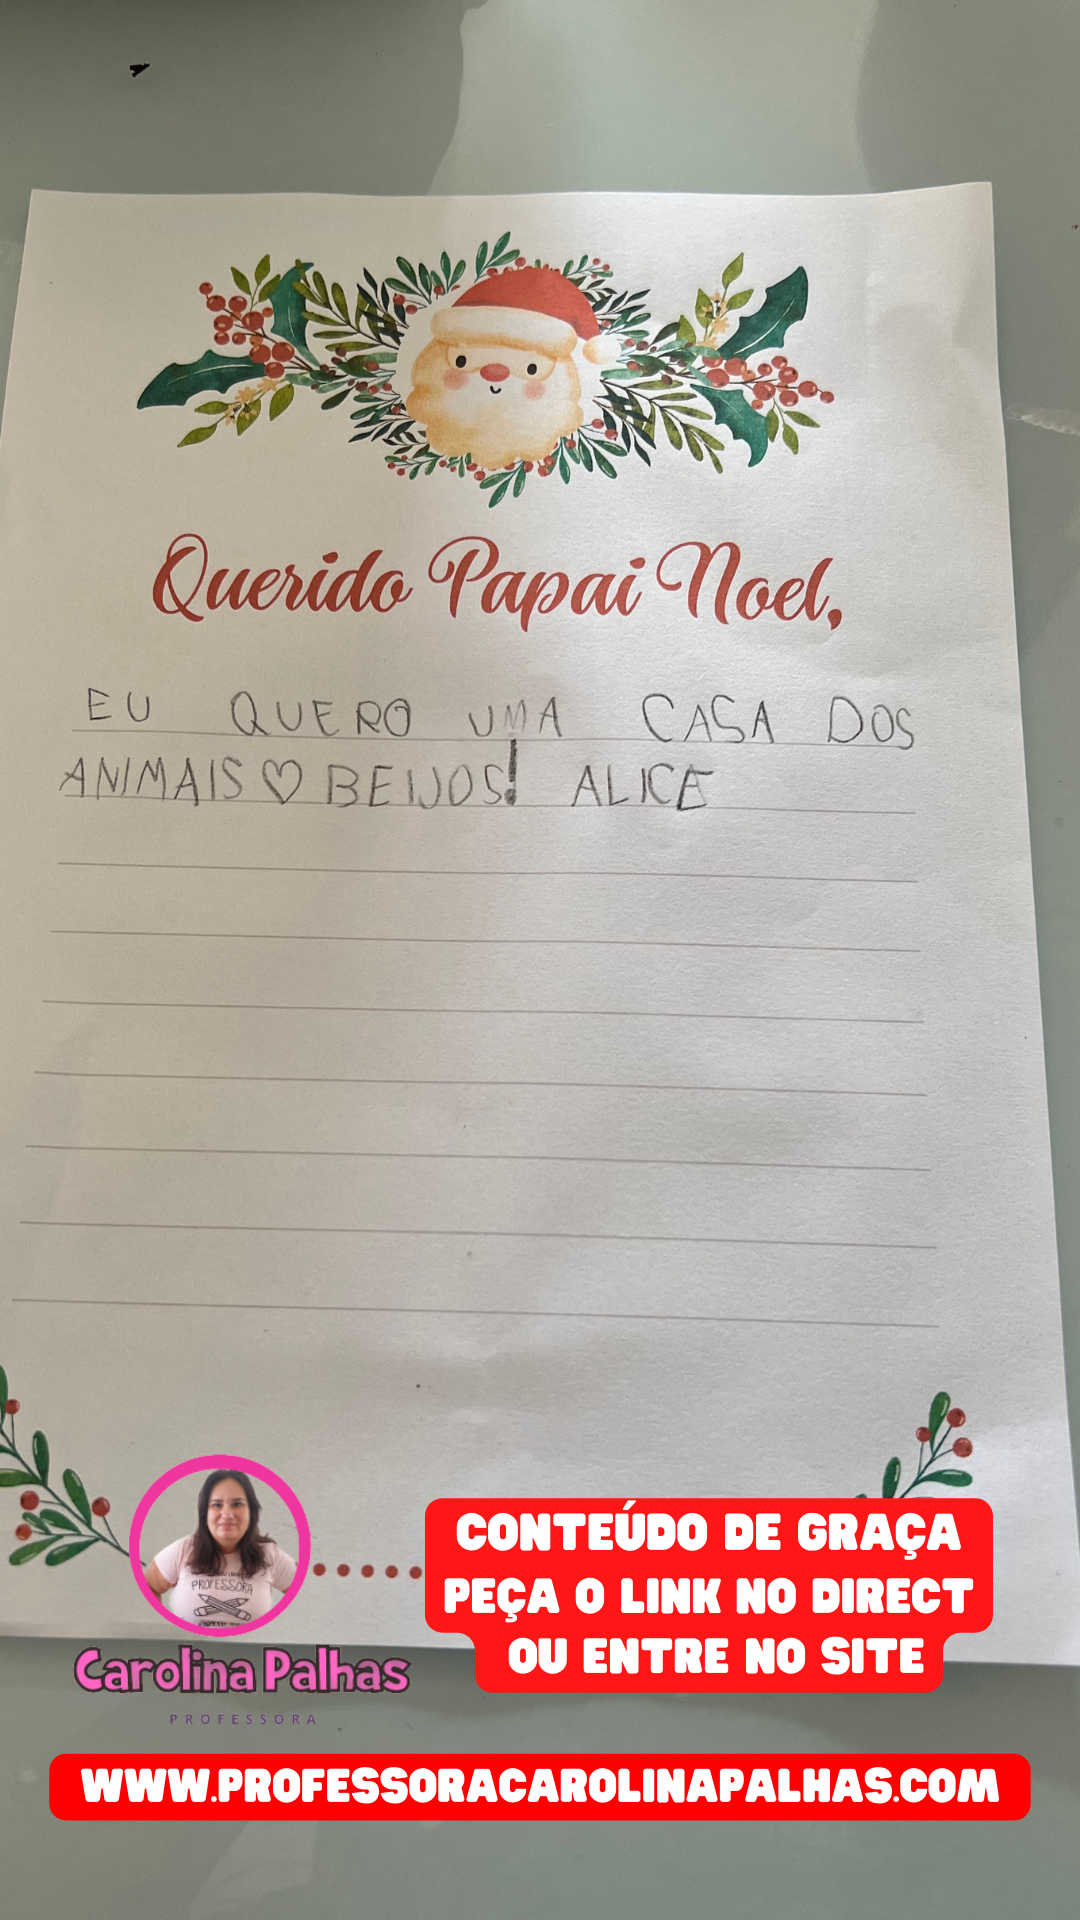 Querido Papai Noel,
EU QUERO UMA CASA DOS
ANIMAIS♡ BEIJOS! ALICE
PROFESSORA
Carolina Palhas
PROFESSORA
CONTEÚDO DE GRAÇA
PEÇA O LINK NO DIRECT
OU ENTRE NO SITE
WWW.PROFESSORACAROLINAPALHAS.COM